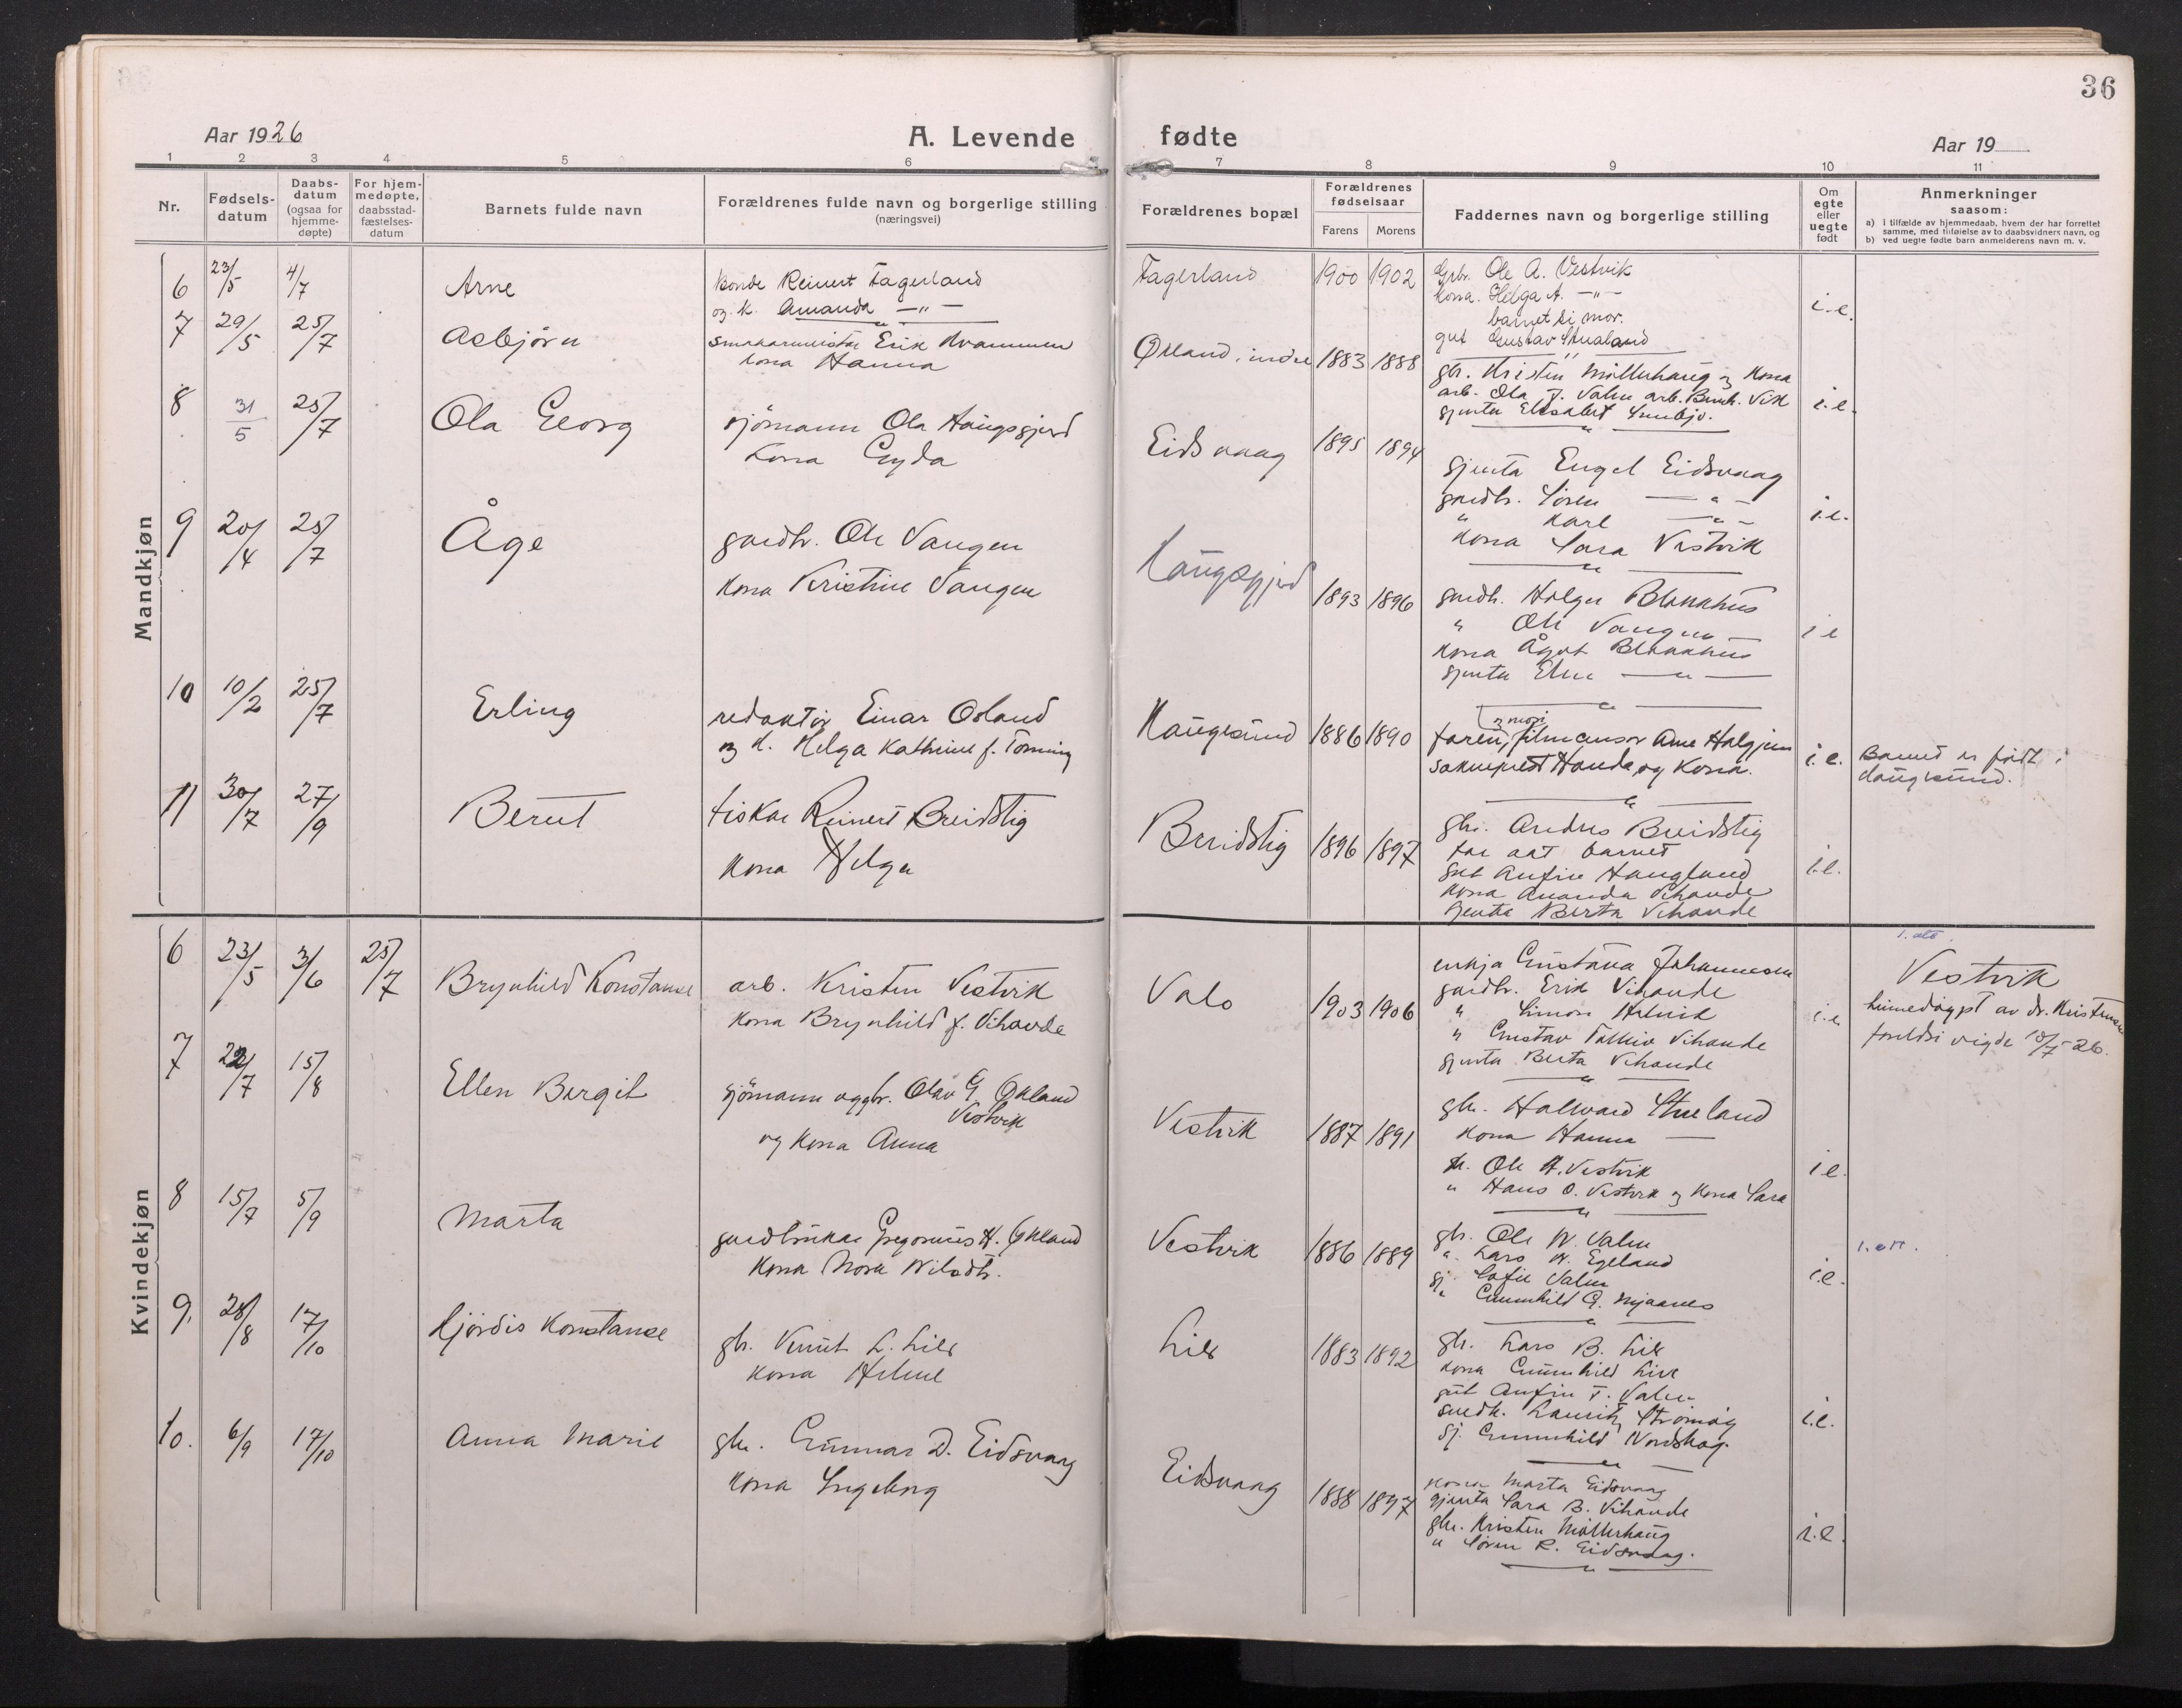 36
Aar 1926
A. Levende fødte
Aar 19
1 2 3 4 5 6 7 8 9 10 11
Nr.
Fødsels-
datum
Daabs-
datum
(ogsaa for
hjemme-
døpte)
For hjem-
medøpte,
daabsstad-
fæstelses-
datum
Barnets fulde navn
Forældrenes fulde navn og borgerlige stilling
(næringsvei)
Forældrenes bopæl
Forældrenes
fødselsaar
Farens Morens
Faddernes navn og borgerlige stilling
Om
egte
eller
uegte
født
Anmerkninger
saasom:
a) i tilfælde av hjemmedaab, hvem der har forrettet
samme, med tilføielse av to daabsvidners navn, og
b) ved uegte fødte barn anmelderens navn m. v.
Mandkjøn
6 23/5 4/7 Arne
bonde Reinert Fagerland
og k. Amanda —"—
Fagerland 1900 1902
Grbr. Ole A. Vestvik
kona Helga A. —"—
barnet si mor.
gut Gustav Stualand
i.e.
7 29/5 25/7 Asbjørn
Erik Kvammen
kona Hanna
Økland, indre 1883 1888
gbr. Kristen Møllerhaug og kona
arb. Ola J. Valen arb. Vik
gjenta Elisabet
i.e.
8 31/5 25/7 Ola Georg
sjömann Ola Haugsgjerd
kona Gyda
Eidsvaag 1895 1894
gjenta Engel Eidsvaag
gardbr. Sören —"—
" Karl —"—
kona Sara Vestvik
i.e.
9 20/4 25/7 Åge
gardbr. Ole Vangen
kona Kristine Vangen
Haugsgjerd 1893 1896
gardb. Holger Blakkhus
" Ole Vangen
kona Ågot Blakkhus
gjenta Else —"—
i e
10 10/2 25/7 Erling
redaktör Einar Osland
og k. Helga Kathrine f. Tonning
Haugesund 1886 1890
og mori
faren, Arne Halgjem
sokneprest Hande og kona.
i.e.
Barnet er födt i
Haugesund.
11 30/7 27/9 Bernt
fiskar Reinert Breidstig
kona Helga
Breidstig 1896 1897
gbr. Andres Breidstig
far aat barnet
gut Anfin Haugland
kona Amanda Vihovde
gjenta Berta Vihovde
i.e.
Kvindekjøn
6 23/5 3/6 25/7 Brynhild Konstanse
arb. Kristen Vestvik
kona Brynhild f. Vihovde
Valo 1903 1906
enkja Gustava Johannesen
gardbr. Erik Vihovde
" Simon
" Gustav Vihovde
gjenta Berta Vihovde
i.e.
Vestvik
heimedöypt av dr.
foreldri vigde 10/7-26.
7 22/7 15/8 Ellen Bergit
sjömann og gbr. Olav G Økland
Vestvik
og kona Anna
Vestvik 1887 1891
gbr. Halvard Stueland
kona Hanna —
Ole A. Vestvik
" Hans O. Vestvik og kona Sara
i.e.
8 15/7 5/9 Marta
gardbrukar Gregorius H. Økland
kona Nora Nilsdtr.
Vestvik 1886 1889
gbr. Ole W. Valen
" Lars W. Egeland
gj. Sofie Valen
" Gunnhild G. Mjaanes
i.e.
9. 28/8 17/10 Hjördis Konstanse
gbr. Knut L. Lier
kona Helene
Lier 1883 1892
gbr. Lars B. Lier
kona Gunnhild Lier
gut Anfin T. Valen
Lauritz Strömöy
gj. Gunnhild Nordskog.
i.e.
10. 6/9 17/10 Anna Marie
gbr. Gunnar D. Eidsvaag
kona Ingeborg
Eidsvaag 1888 1897
kona Marta Eidsvaag
gjenta Sara B. Vihovde
gbr. Kristen Möllerhaug
" Sören R. Eidsvaag.
i.e.